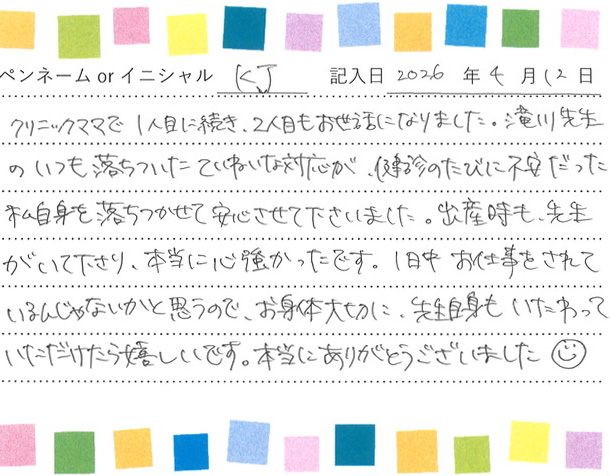 ペンネーム or イニシャル K.J 記入日 2026 年 4 月 12 日
クリニックママで 1人目に続き、2人目もお世話になりました。滝川先生
のいつも落ちついたていねいな対応が、健診のたびに不安だった
私自身を落ちつかせて安心させて下さいました。出産時も、先生
がいて下さり、本当に心強かったです。1日中 お仕事をされて
いるんじゃないかと思うので、お身体大切に、先生自身も いたわって
いただけたら嬉しいです。本当にありがとうございました